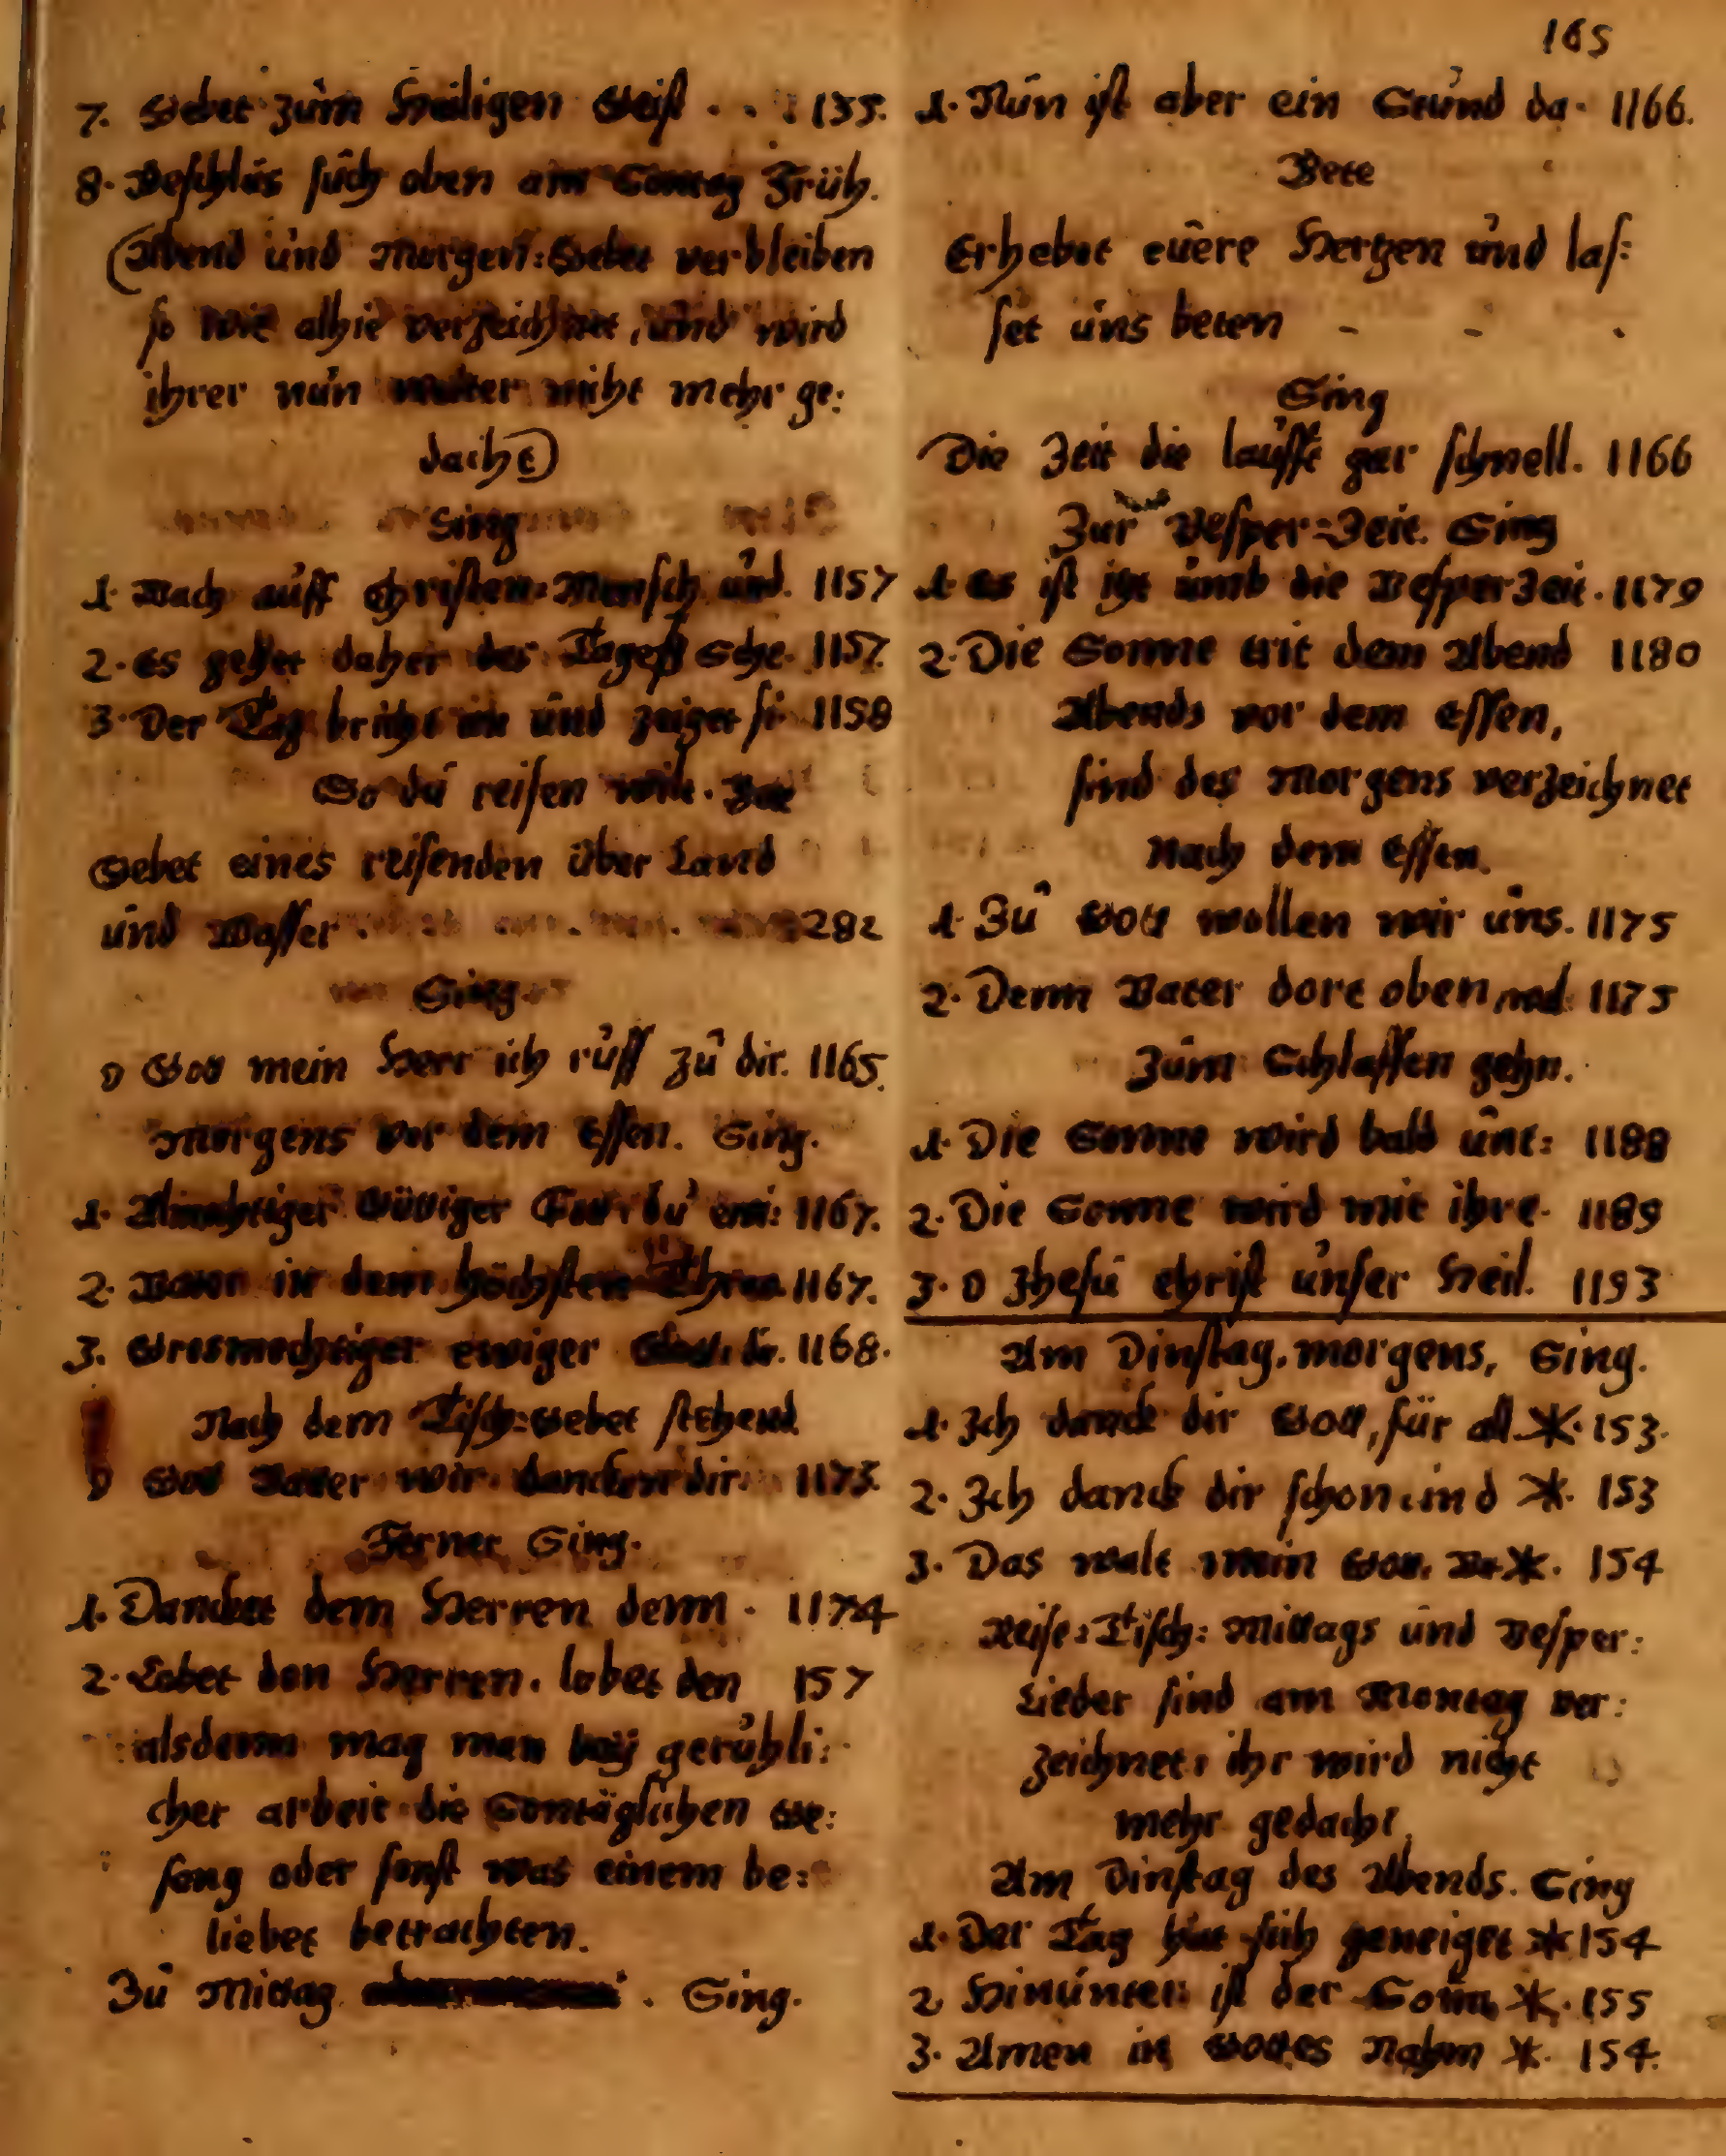 165
7. Gebet zum Heiligen Geist . . : 135.
8. Beschlus such oben am Sontag Früh.
(Abend und Morgen: Gebet verbleiben
so wie alhie verzeichnet, und wird
ihrer nun weiter nicht mehr ge:
dacht)
Sing
1. Wach auff Christen: Mensch und. 1157
2. Es gehet daher des Tageß Sche. 1157.
3. Der Tag bricht an und zeiget si. 1158
So du reisen wilt. Bet
Gebet eines reisenden über Land
und Wasser 282
Sing
O Gott mein Herr ich ruff zu dir. 1165.
Morgens vor dem Essen. Sing.
1. Almechtiger Gütiger Gott, du ewi: 1167.
2. Vater in dem höchsten Thron. 1167.
3. Grosmechtiger ewiger Gott, dir. 1168.
Nach dem Tisch: Gebet stehend.
O Gott Vater wir dancken dir. 1173.
Ferner Sing.
1. Dancket dem Herren denn . 1174
2. Lobet den Herren, lobet den 157
alsdenn mag man beÿ geruhli:
cher arbeit die Sontäglichen Ge:
seng oder sonst was einem be:
liebet betrachten.
Zu Mittag . Sing.
1. Nun ist aber ein Stund da. 1166.
Bete
Erhebet euere Hertzen und las:
set uns beten - - .
Sing
Die Zeit die laufft gar schnell. 1166
Zur Vesper=Zeit. Sing
1. Es ist itzt umb die Vesper Zeit. 1179
2. Die Sonne trit dem Abend 1180
Abends vor dem Essen,
sind des Morgens verzeichnet
Nach dem Essen.
1. Zu Gott wollen wir uns. 1175
2. Denn Vater dort oben, 1175
Zum Schlaffen gehn.
1. Die Sonne wird bald unt: 1188
2. Die Sonne wird mit ihre. 1189
3. O Jhesu Christ unser Heil. 1193
Am Dinstag, morgens, Sing.
1. Ich danck dir Gott, für all * . 153.
2. Ich danck dir schon und * . 153
3. Das walt mein Gott. * . 154
Reise: Tisch: Mittags und Vesper:
Lieder sind am Montag ver:
zeichnet, ihr wird nicht
mehr gedacht,
Am Dinstag des Abends. Sing
1. Der Tag hat sich geneiget * 154
2 Hinunter: ist der Sonn * . 155
3. Amen in Gottes Nahm * . 154.